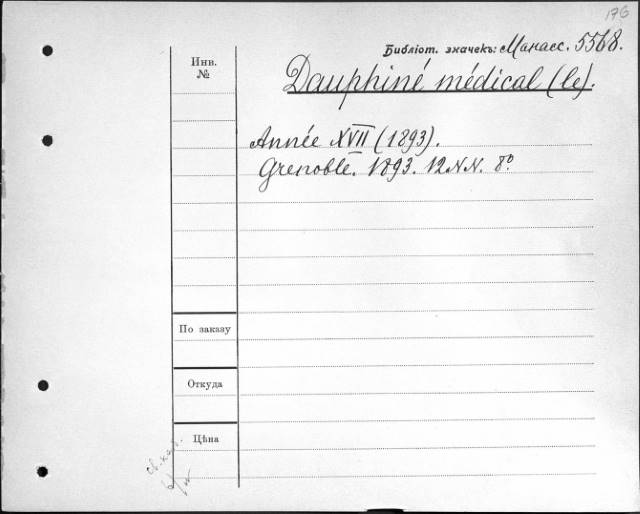 176
Библіот. значекъ: Манасс. 5568.
Инв.
№
Dauphiné médical (le).
Année XVII (1893).
Grenoble. 1893. 12 N.N. 8º.
По заказу
Откуда
Цѣна